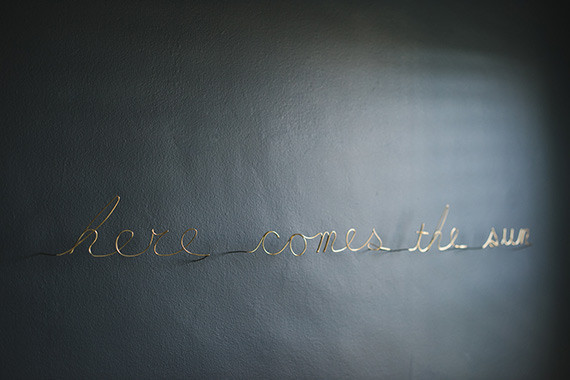 here comes the sun